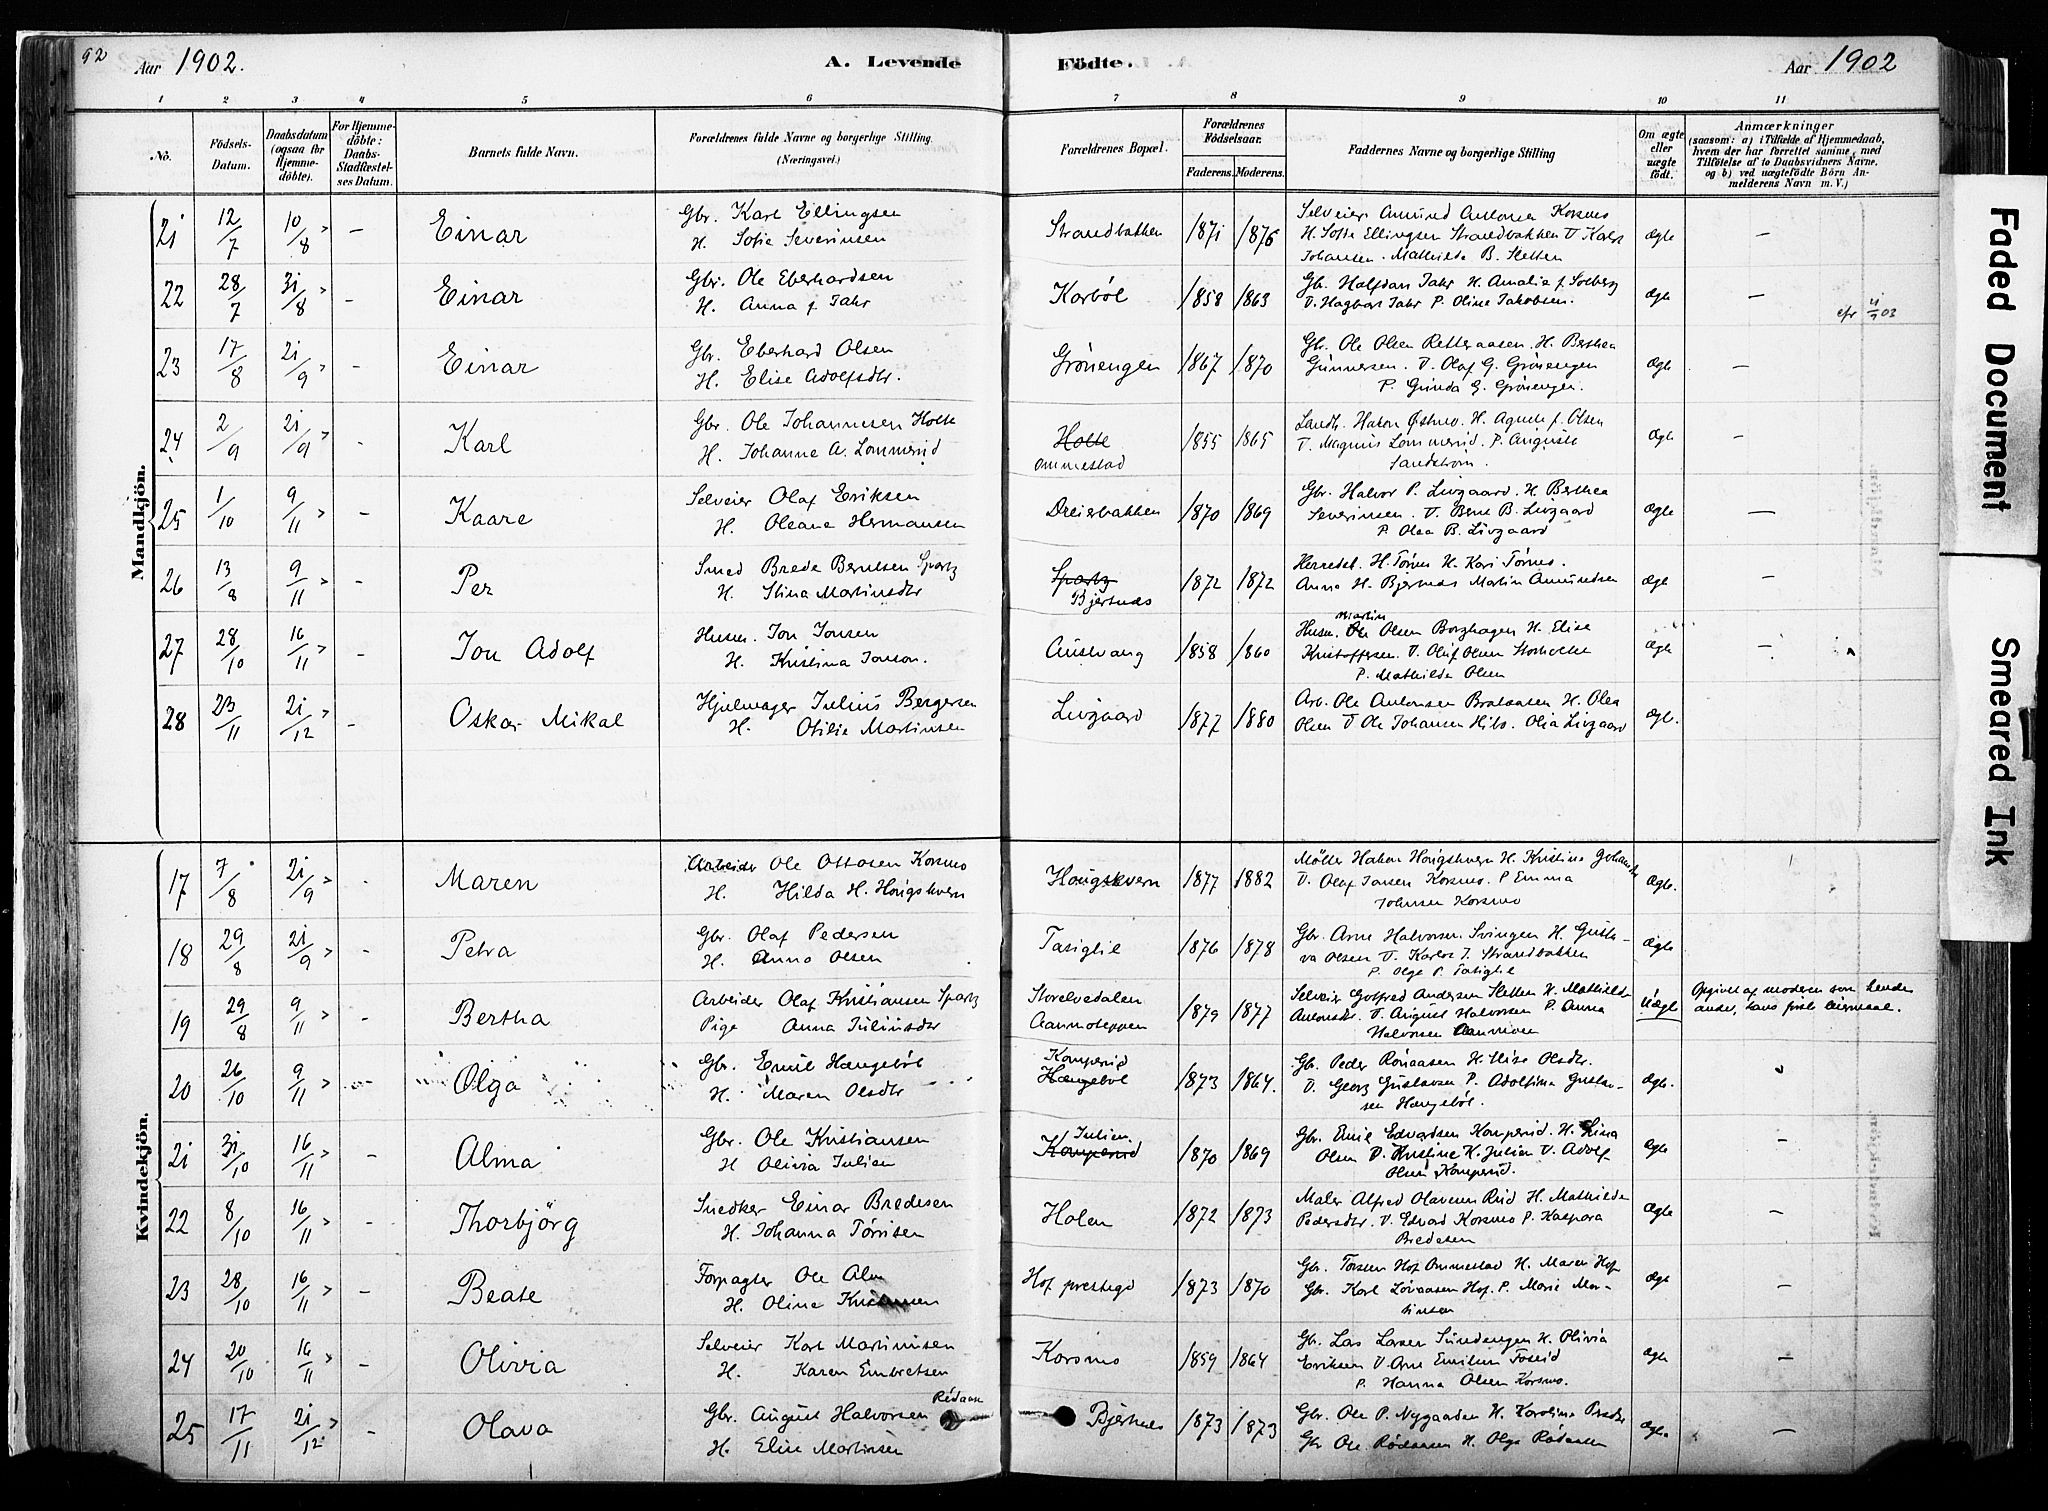 92
Aar 1902.
A. Levende
Födte.
Aar 1902
1 2 3 4 5 6 7 8 9 10 11
No.
Födsels-
Datum.
Daabsdatum
(ogsaa for
Hjemme-
döbte).
For Hjemme-
döbte:
Daabs-
Stadfæstel-
ses Datum.
Barnets fulde Navn.
Forældrenes fulde Navne og borgerlige Stilling.
(Næringsvei.)
Forældrenes Bopæl.
Forældrenes
Födselsaar.
Faderens.
Moderens.
Faddernes Navne og borgerlige Stilling
Om ægte
eller
uægte
födt.
Anmærkninger
(saasom: a) i Tilfælde af Hjemmedaab,
hvem der har forrettet samme, med
Tilföielse af to Daabsvidners Navne,
og b) ved uægtefödte Börn An-
melderens Navn m. V.)
Mandkjön.
21 12/7 10/8 - Einar
Gbr. Karl Ellingsen
H. Sofie Severinsen
Strandbakken 1871 1876
Selveier Amund Antonsen Korsmo
H. Sofie Ellingsen Strandbakken U. Karl
Johansen. Mathilde B. Sletten
Ægte -
22 28/7 31/8 - Einar
Gbr. Ole Eberhardsen
H. Anna f Jahr
Korböl 1858 1863
Gb. Halfdan Jahr H. Amalie f. Solberg
U. Hagbart Jahr P. Oline Jakobsen.
Ægte -
23 17/8 21/9 - Einar
Gbr. Eberhard Olsen
H. Elise Adolfsdtr.
Grönengen 1867 1870
Gbr. Ole Olsen Retteraasen. H. Berthea
Gunnersen. U. Olaf G. Grönengen
P. Gunda G. Grönengen.
Ægte -
24 2/9 21/9 - Karl
Gbr. Ole Johannesen Holte
H. Johanne A. Lommerud
Holte
Ommestad 1855 1865
Landh. Hakon Østmo. H. Agnete f. Olsen
U. Magnus Lommerud. P. Auguste
Sandström.
Ægte -
25 1/10 9/11 - Kaare
Selveier Olaf Eriksen
H. Oleane Hermansen
Dreierbakken 1870 1869
Gbr. Halvor P. Livgaard. H. Berthea
Severinsen. U. Bernt B. Livgaard
P. Olea B. Livgaard
Ægte -
26 13/8 9/11 - Per
Smed Brede Berntsen Spartz
H. Stina Martinsdtr
Spartz
Bjertnæs 1872 1872
H. Törmo H. Kari Törmo.
Anna H. Bjernæs Martin Amundsen
ægt -
27 28/10 16/11 - Jon Adolf
Husm. Jon Jonsen
H. Kristina Jonson.
Austvang 1858 1860
Martin
Husm. Ole Olsen Borghagen H. Elise
Kristoffersen. U. Oluf Olsen Storholte
P. Mathilde Olsen
Ægte -
28 23/11 21/12 - Oskar Mikal
Hjulmager Julius Bergersen
H. Otilie Martinsen
Livgaard 1877 1880
Arb. Ole Antonsen Brataasen H. Olea
Olsen U Ole Johansen Olea Livgaard
Ægt.
Kvindekjön.
17 7/8 21/9 - Maren
Arbeider Ole Ottosen Korsmo
H. Hilda H. Hougskvern
Hougskvern 1877 1882
Möller Hakon Hougskvern H. Kristine
U. Olaf Jansen Korsmo. P Emma
Johnsen Korsmo
Ægte.
18 29/8 21/9 - Petra
Gbr. Olaf Pedersen
H. Anna Olsen
Tasiglie 1876 1878
Gbr. Arne Halvorsen. Svingen H. Gusta-
va Olsen U. Karlot J. Strandbakken
P. Olga P. Tasiglie
Ægte
19 29/8 9/11 - Bertha
Arbeider Olaf Kristiansen Spartz
Pige Anna Juliusdtr
Storelvedalen
Aamoteppen 1879 1877
Selveier Gotfred Andersen Sletten H. Mathilde
Antonsdtr. U. August Halvorsen P. Anna
Halvorsen
Uægt
Opgivet af moderen som hendes
andet, hans förste leiermaal.
20 26/10 9/11 - Olga
Gbr. Emil Hængeböl
H. Maren Olsdtr
Komperud
Hængeböl 1873 1864.
Gbr. Peder Rönaasen H. Elise Olsdtr.
U. Georg Gustavsen P. Adolfina Gustav-
sen Hængeböl.
Ægt.
21 31/10 16/11 - Alma
Gbr. Ole Kristiansen
H Olivia Julien
Julien.
Komperud 1870 1869
Gbr. Emil Edvardsen Komperud. H. Lina
Olsen U. Kristine K. Julien U. Adolf
Olsen Komperud.
Ægte -
22 8/10 16/11 - Thorbjörg
Snedker Einar Bredesen
H. Johanna Törrisen
Holen 1872 1873
Maler Alfred Olavesen Rud H. Mathilde
Pedersdtr. U. Edvard Korsmo P. Kaspara
Bredesen
Ægte -
23 28/10 16/11 - Beate
Forpagter Ole Alm
H. Oline Kristiansen
Hof prestegd 1873 1870
Gbr. Torsten Hof Ommestad H. Maren Hof
Gbr. Karl Lövaasen Hof. P. Marie Mar-
tinsen
Ægt -
24 20/10 16/11 - Olivia
Selveier Karl Martinusen
H. Karen Embretsen
Korsmo 1859 1864
Gbr. Las Larsen Sundengen H. Olivia
Eriksen U. Arne Emilsen Foseid
P. Hanna Olsen Korsmo.
Ægte -
25 17/11 21/12 - Olava
Gbr. August Halvorsen Rödaas
H. Elise Martinsen
Bjertnes 1873 1873
Gbr. Ole P. Nygaarden H. Karoline Pedsdtr
Gbr Ole Rödaasen H. Olga Rödaasen
Ægte -
Faded Document
Smeared Ink